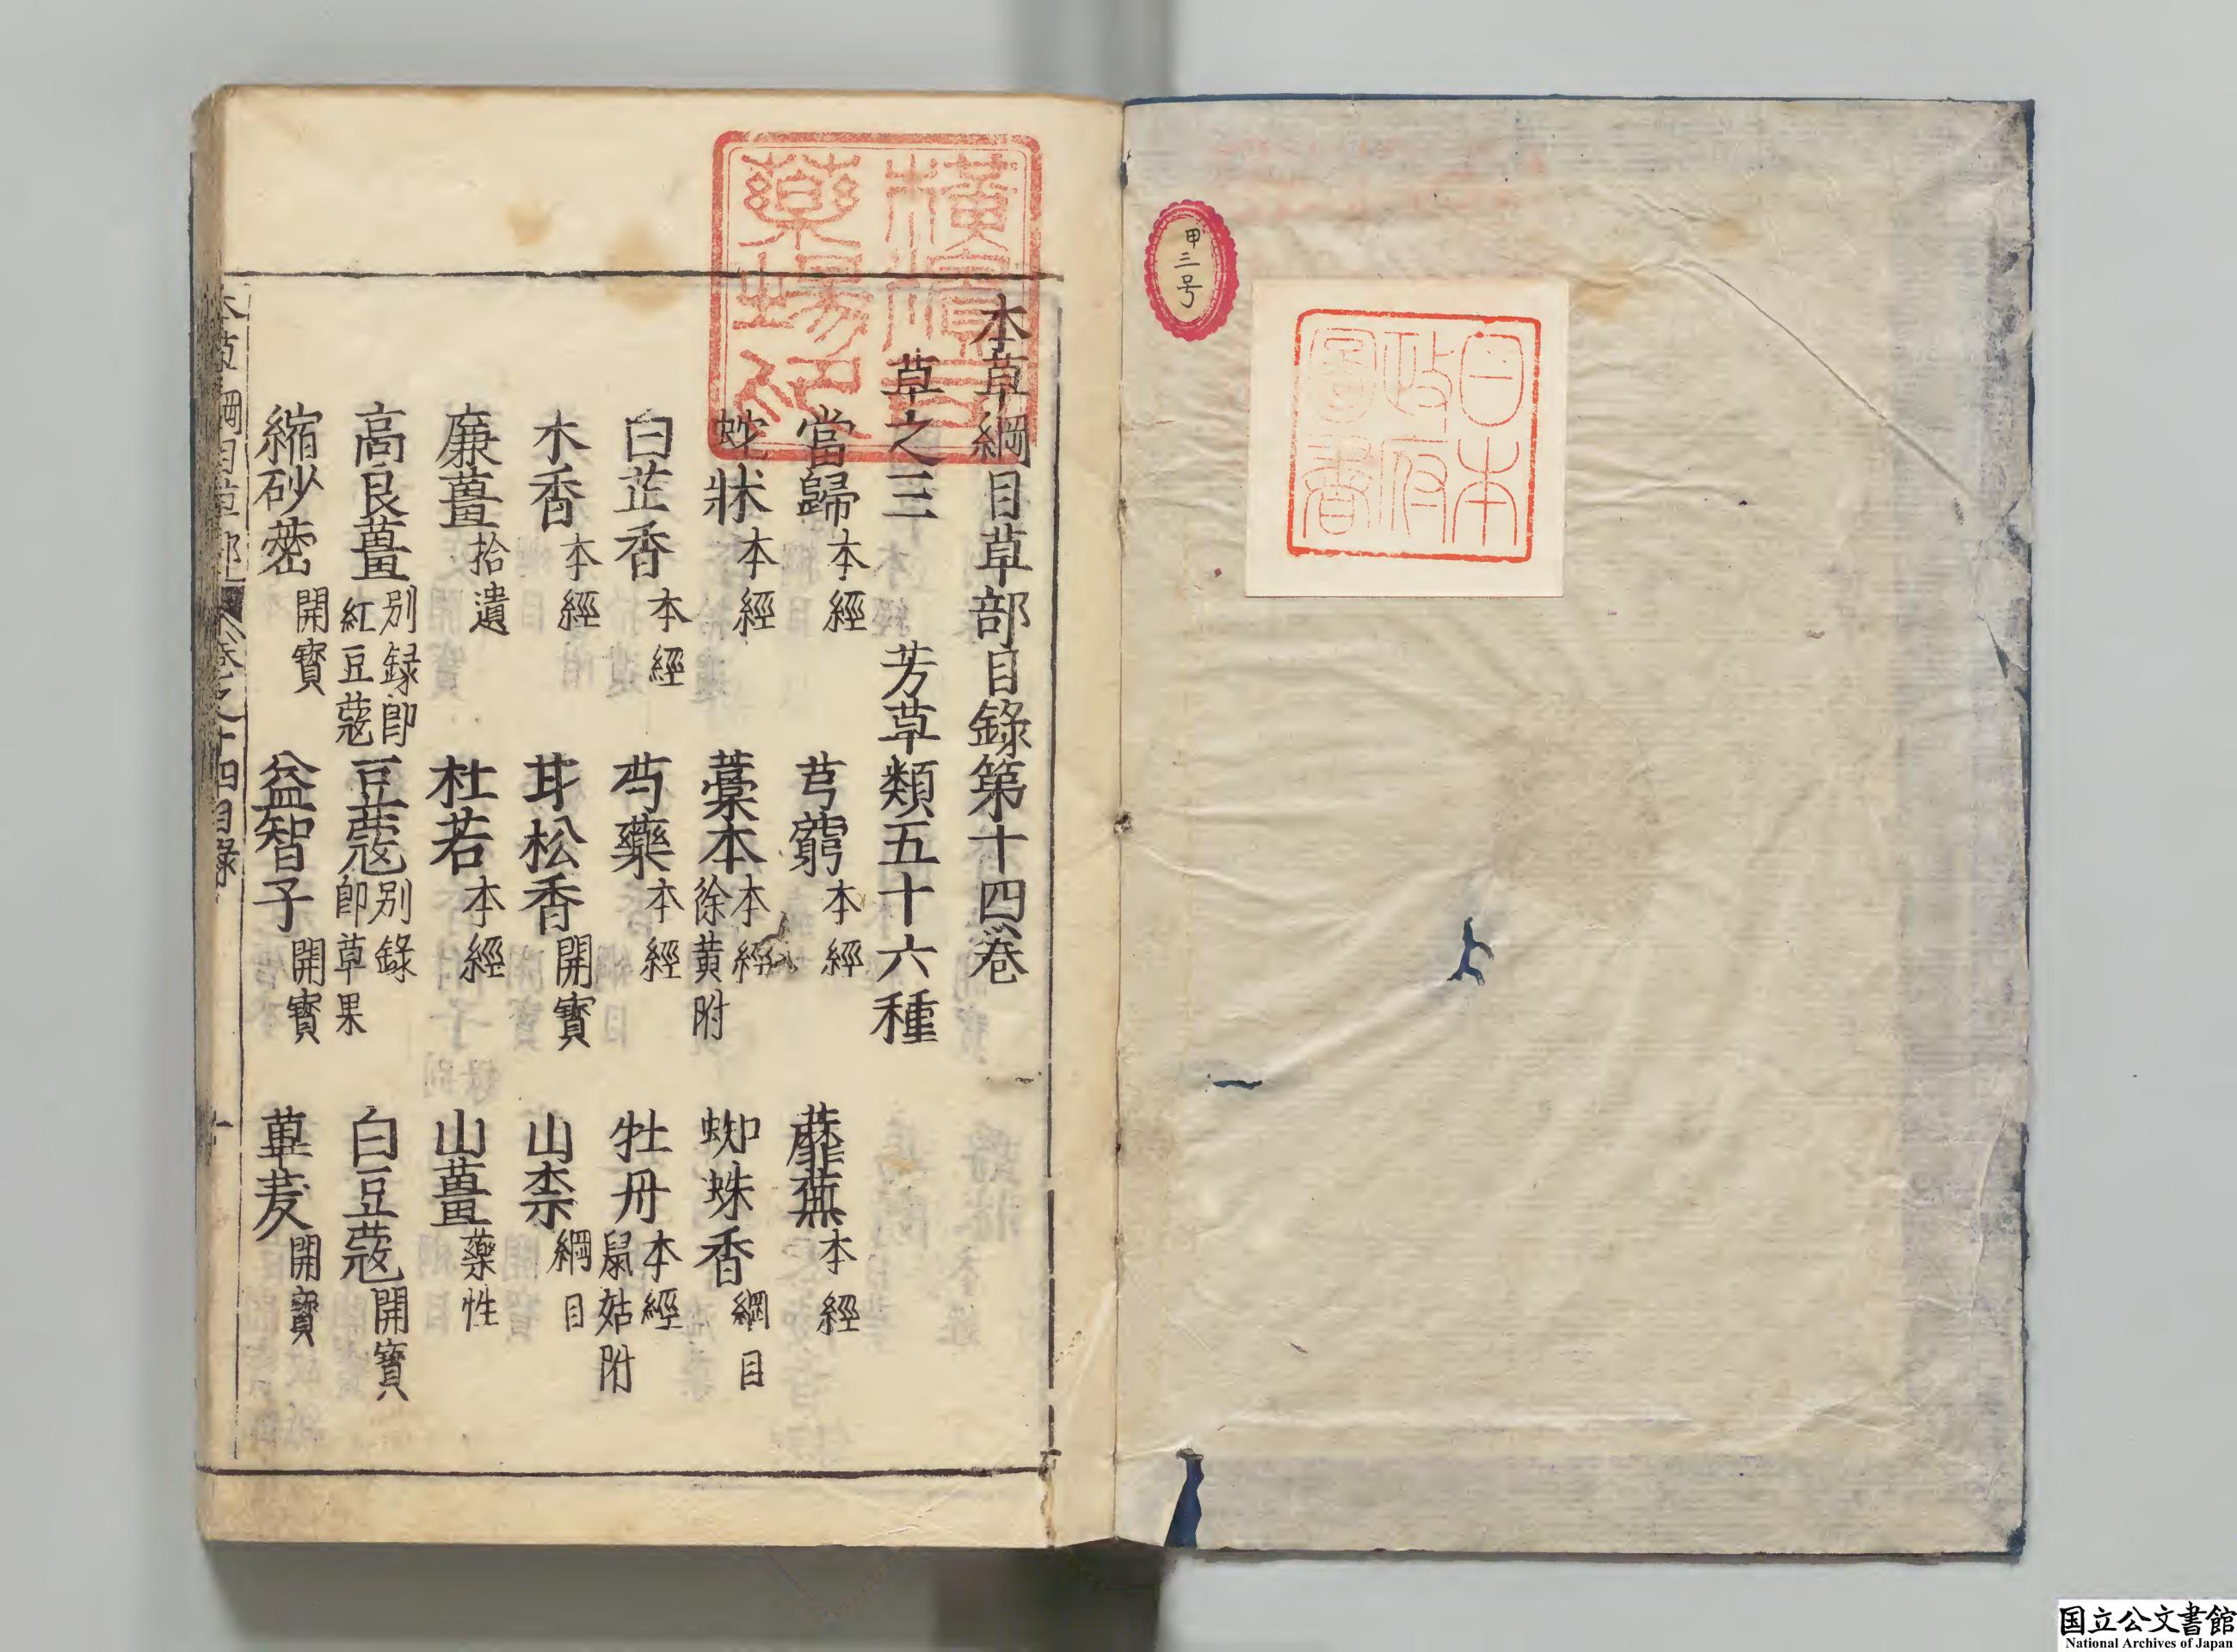 甲三号
日本
政府
圖書
橫濱司
藥場印
本草綱目草部目錄第十四卷
草之三　芳草類五十六種
當歸本經　芎藭本經　蘼蕪本經
蛇牀本經　藁本本經徐黃附　蜘蛛香綱目
白芷香本經　芍藥本經　牡丹本經鼠姑附
木香本經　甘松香開寶　山柰綱目
廉薑拾遺　杜若本經　山薑藥性
高良薑別録即紅豆蔻　豆蔻別錄即草果　白豆蔻開寶
縮砂蔤開寶　益智子開寶　蓽茇開寶
本草綱目草部　卷之十四目錄　一
国立公文書館
National Archives of Japan